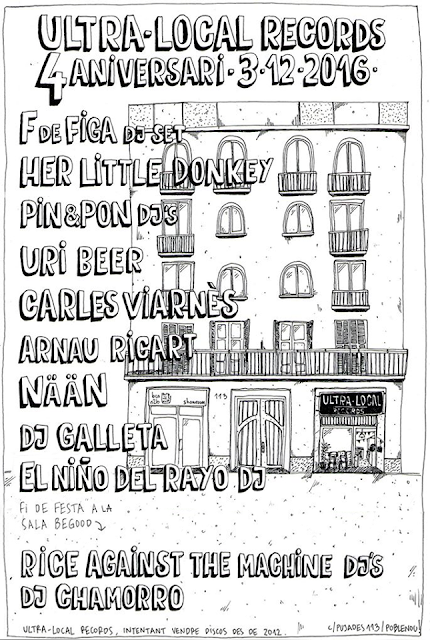 ULTRA-LOCAL RECORDS
4 ANIVERSARI · 3·12·2016·
F DE FIGA DJ-SET
HER LITTLE DONKEY
PIN & PON DJ'S
URI BEER
CARLES VIARNÈS
ARNAU RICART
NÄÄN
113
ULTRA-LOCAL
RECORDS
DJ GALLETA
EL NIÑO DEL RAYO DJ
FI DE FESTA A LA
SALA BEGOOD
RICE AGAINST THE MACHINE DJ'S
DJ CHAMORRO
ULTRA-LOCAL RECORDS, INTENTANT VENDRE DISCOS DES DE 2012
C/PUJADES 113/POBLENOU